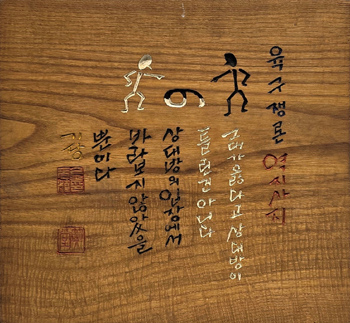 육구쟁론 역지사지
그대가 옳다고 상대방이
틀린건 아니다
상대방의 입장에서
바라보지 않았을
뿐이다